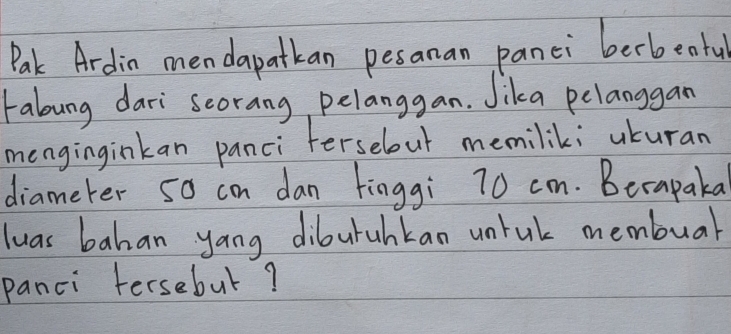 Pak Ardin mendapatkan pesanan panci berbentuk
tabung dari seorang pelanggan. Jika pelanggan
menginginkan panci tersebut memiliki ukuran
diameter 50 cm dan tinggi 70 cm. Berapakah
luas bahan yang dibutuhkan untuk membuat
panci tersebut ?